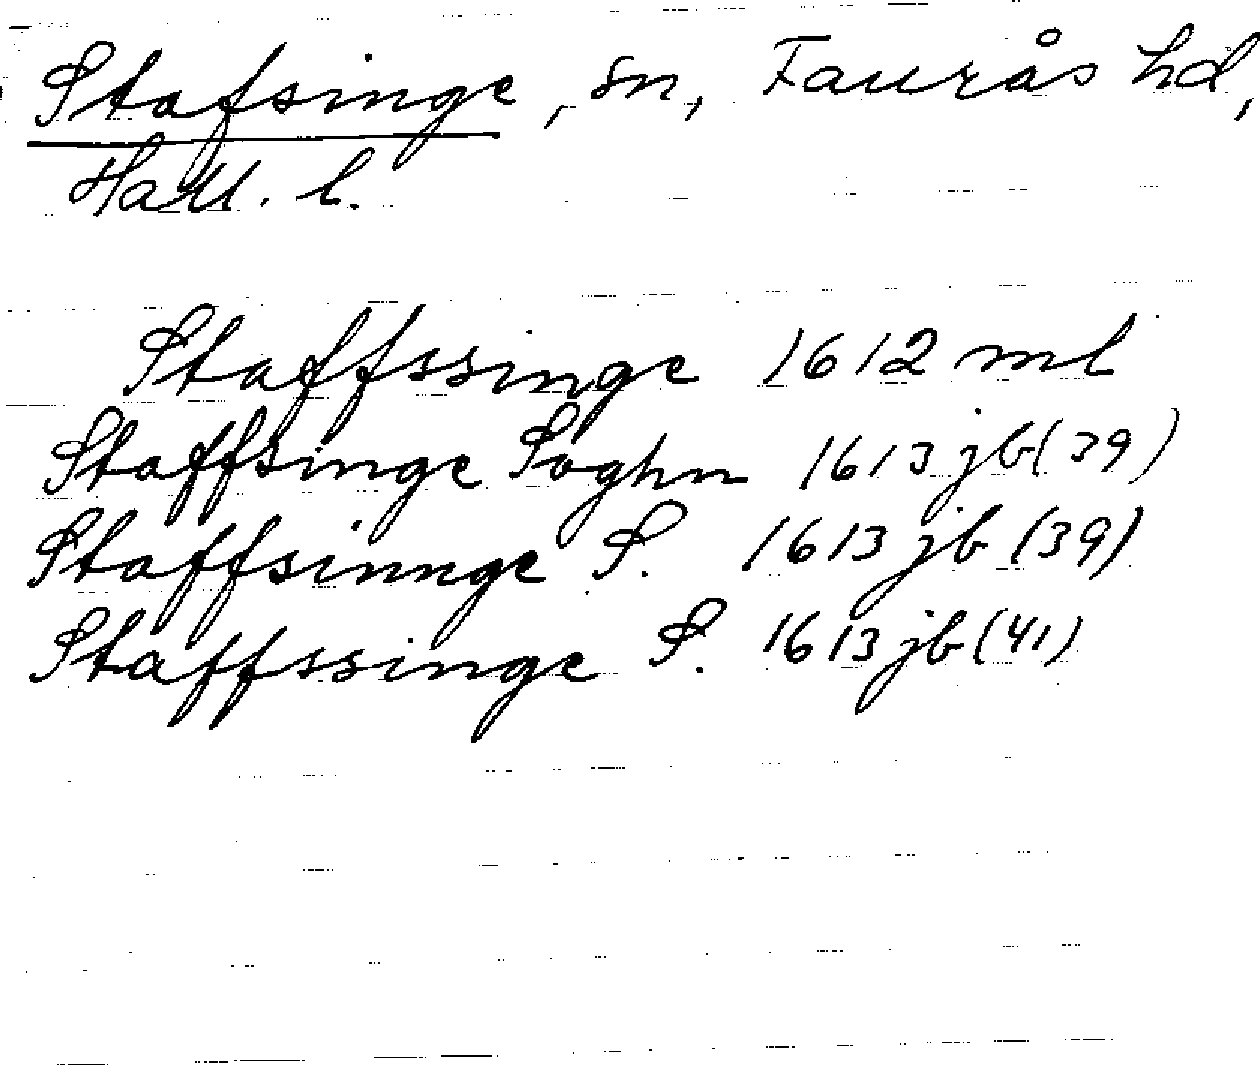 Stafsinge, sn, Faurås hd,
Hall. l.
Staffssinge 1612 ml
Staffsinge Soghn 1613 jb (39)
Staffsinnge S. 1613 jb (39)
Staffssinge S. 1613 jb (41)